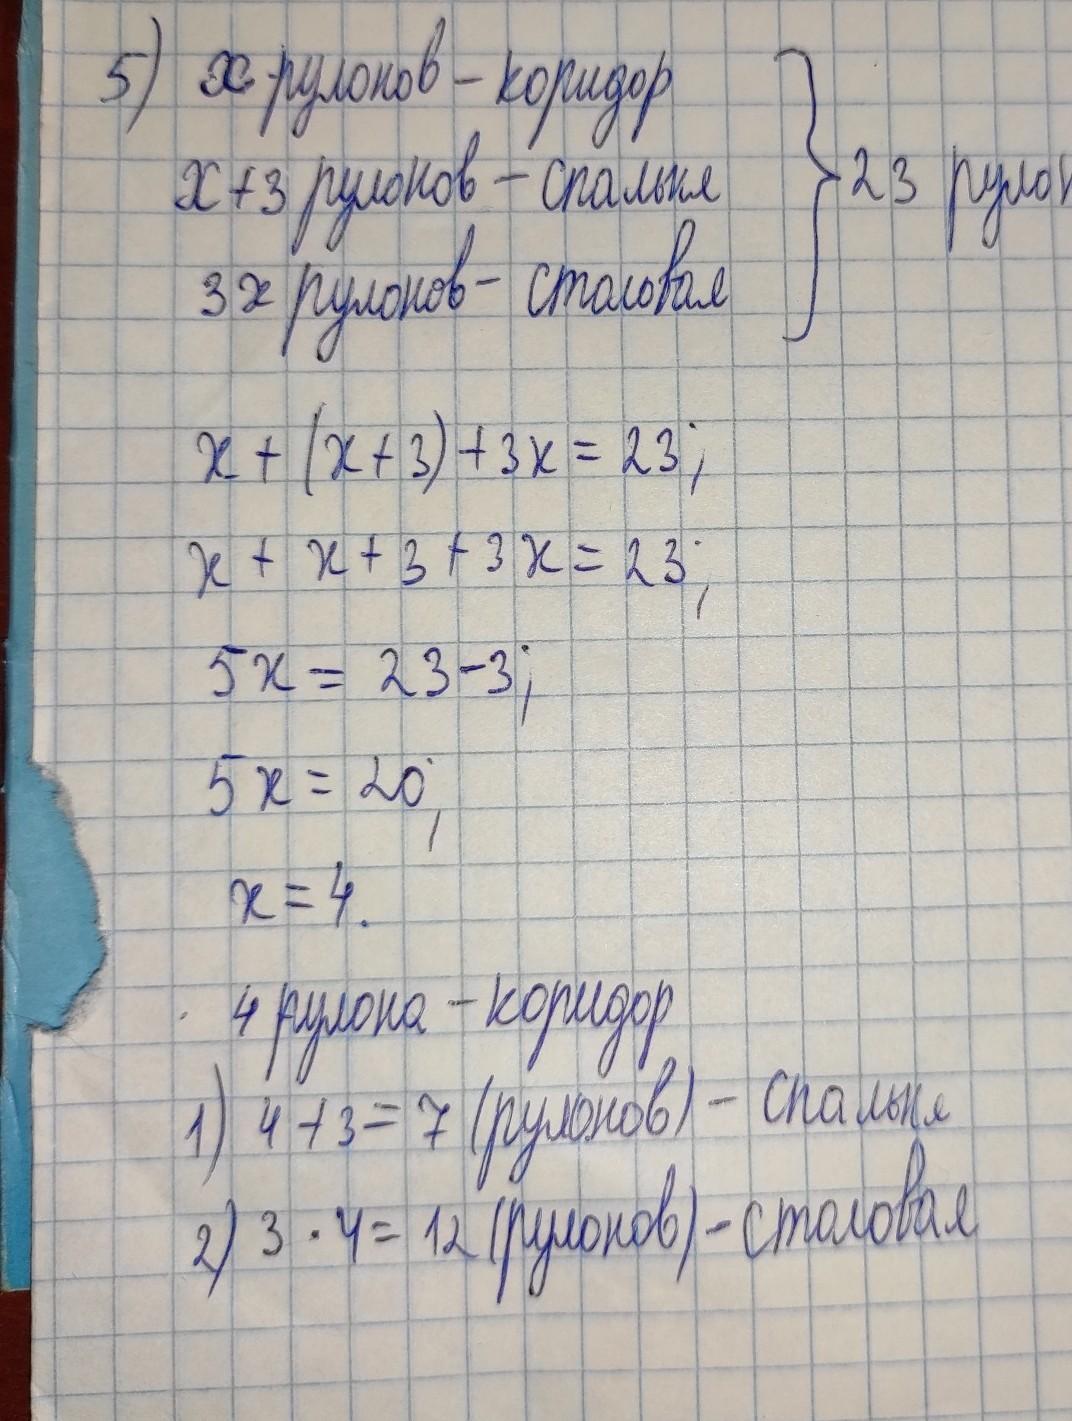 5) x рулонов – коридор
x+3 рулонов – спальня } 23
3x рулонов – столовая
x + (x+3) + 3x = 23;
x + x + 3 + 3x = 23;
5x = 23-3;
5x = 20;
x = 4.
4 рулона – коридор
1) 4+3=7 (рулонов) – спальня
2) 3 · 4 = 12 (рулонов) – столовая